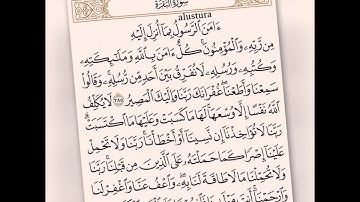 سُورَةُ البَقَرَةِ
alustura
ءَامَنَ ٱلرَّسُولُ بِمَآ أُنزِلَ إِلَيْهِ
مِن رَّبِّهِۦ وَٱلْمُؤْمِنُونَ ۚ كُلٌّ ءَامَنَ بِٱللَّهِ وَمَلَٰٓئِكَتِهِۦ
وَكُتُبِهِۦ وَرُسُلِهِۦ لَا نُفَرِّقُ بَيْنَ أَحَدٍ مِّن رُّسُلِهِۦ ۚ وَقَالُوا۟
سَمِعْنَا وَأَطَعْنَا ۖ غُفْرَانَكَ رَبَّنَا وَإِلَيْكَ ٱلْمَصِيرُ ٢٨٥ لَا يُكَلِّفُ
ٱللَّهُ نَفْسًا إِلَّا وُسْعَهَا ۚ لَهَا مَا كَسَبَتْ وَعَلَيْهَا مَا ٱكْتَسَبَتْ ۗ
رَبَّنَا لَا تُؤَاخِذْنَآ إِن نَّسِينَآ أَوْ أَخْطَأْنَا ۚ رَبَّنَا وَلَا تَحْمِلْ
عَلَيْنَآ إِصْرًا كَمَا حَمَلْتَهُۥ عَلَى ٱلَّذِينَ مِن قَبْلِنَا ۚ رَبَّنَا
وَلَا تُحَمِّلْنَا مَا لَا طَاقَةَ لَنَا بِهِۦ ۖ وَٱعْفُ عَنَّا وَٱغْفِرْ لَنَا
وَٱرْحَمْنَآ ۚ أَنتَ